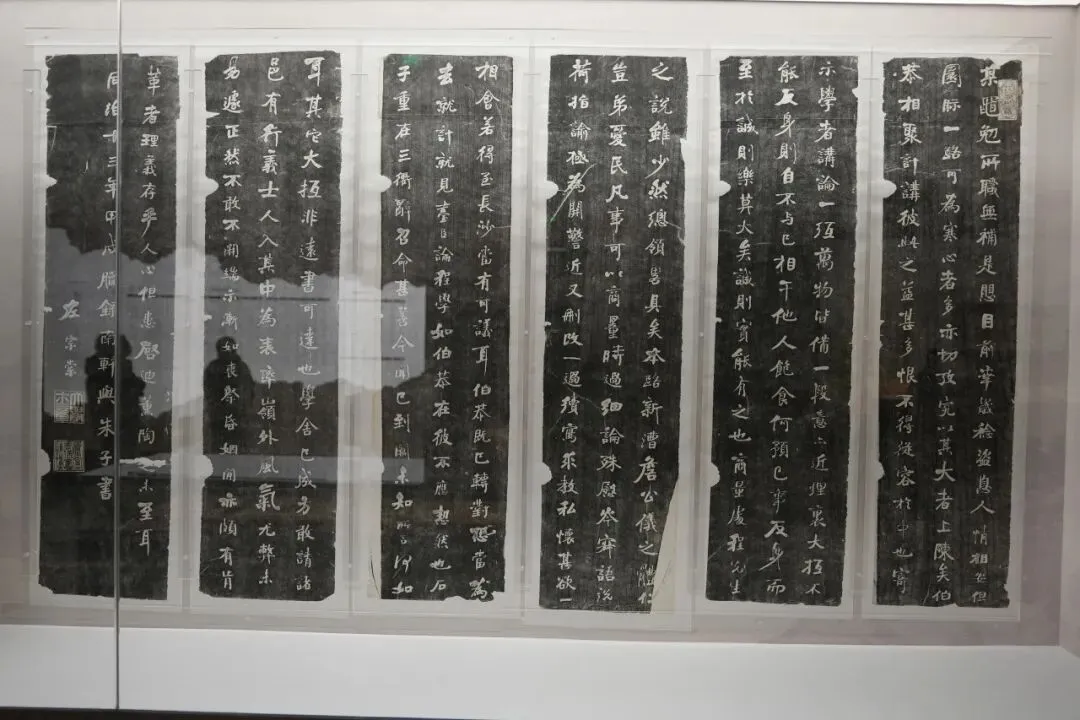 某黽勉所職無補是懼目前幸歲稔盜息人情相安但
園際一路可為寒心者多亦切攷究以其大者上陳矣伯
恭相聚計講彼此之益甚多恨不得從容於中也寄
示學者講論一項萬物皆備一段意亦近裡裏大抵不
能反身則自不與己相干他人飽食何預己事反身而
至於誠則樂莫大矣誠則實能有之也商量處程先生
之說雖少然總領畧具矣本路新漕詹公儀之體仁
豈弟愛民凡事可以商量時過細論殊慰岑寂語說
荷指諭極為開警近又刪改一過續寫求教私懷甚欲一
相會若得至長沙當有可議耳伯恭既已轉對恐當為
去就計就見臺臣論程學如伯恭在彼不應恝然也石
子重在三衢辭召命甚善今聞已到闕未知所言何如
耳其它大抵非遠書可達也學舍已成方敢請諸
邑有行義士人入其中為表率嶺外風氣尤弊未
易遽正然不敢不開端示漸如喪祭昏姻間亦頗有肯
革者理義存乎人心但患啟迪薰陶之未至耳
同治十三年甲戌臘錄南軒與朱子書
左宗棠